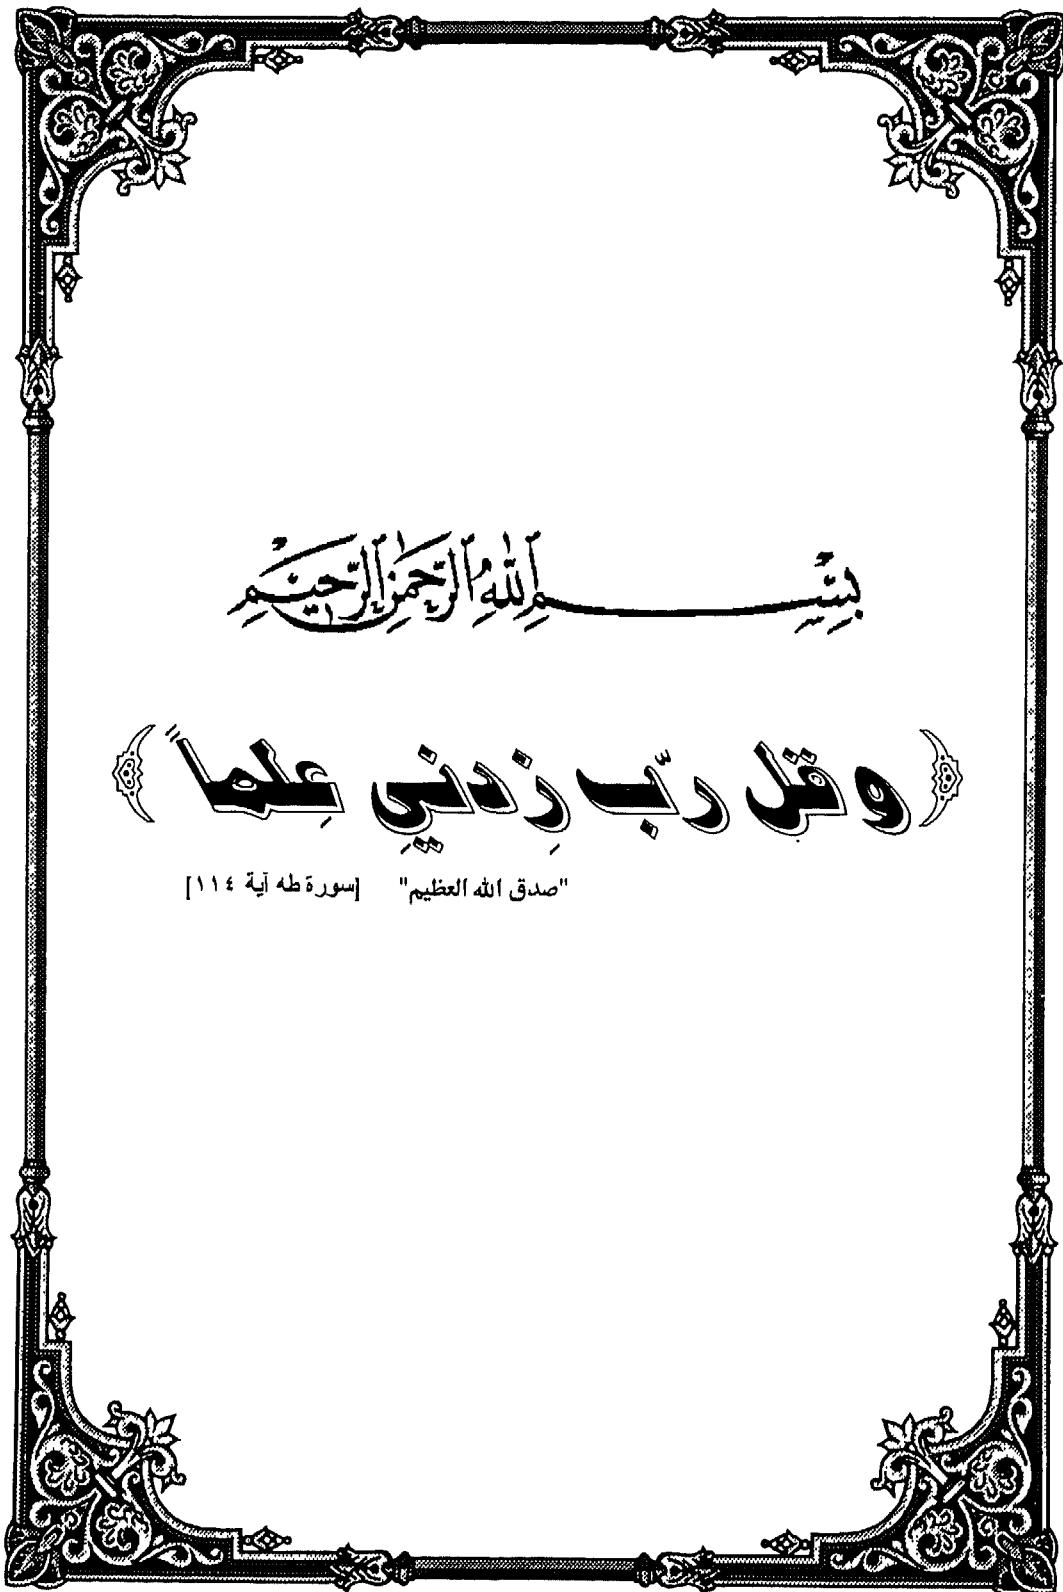 بِسْمِ اللهِ الرَّحْمٰنِ الرَّحِيمِ
﴿ وقل ربّ زِدني عِلماً ﴾
"صدق الله العظيم" [سورة طه آية ١١٤]